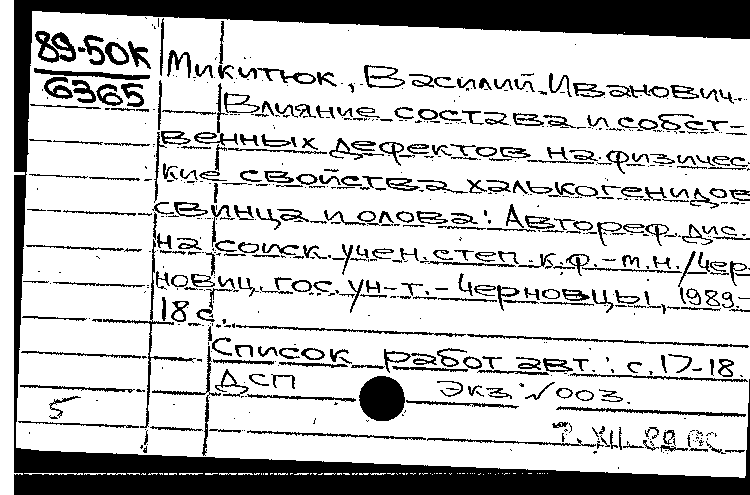 89-50К
6365
Микитюк, Василий Иванович.
Влияние состава и собст-
венных дефектов на физичес
кие свойства халькогенидов
свинца и олова: Автореф. дис.
на соиск. учен. степ. к.ф.-м.н. / Чер
новиц. гос. ун-т. - Черновцы, 1989.-
18 с.
Список работ авт.: с. 17-18.
ДСП Экз. № 003.
5
XII. 89